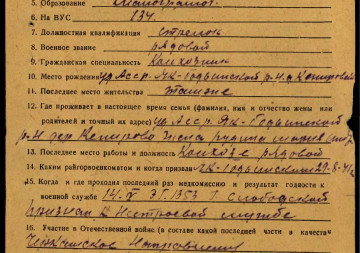 5. Образование Малограмот.
6. На ВУС 134
7. Должностная квалификация стрелок
8. Военное звание рядовой
9. Гражданская специальность Колхозник
10. Место рождения Уд. Асср. Як-Бодьинской р-н д. Кемирово
11. Последнее место жительства
12. Где проживает в настоящее время семья (фамилия, имя и отчество жены или
родителей и точный их адрес) Уд. Асср. Як-Бодьинской
р-н дер. Кемирово жена
13. Последнее место работы и должность Колхозе рядовой
14. Каким райгорвоенкоматом и когда призван Як-Бодьинским 29-8-41г
15. Когда и где проходил последний раз медкомиссию и результат годности к
военной службе 14-IV Э.Г. 1353 г Слободской
признан к нестроевой службе
16. Участие в Отечественной войне (в составе какой последней части и качестве
направления